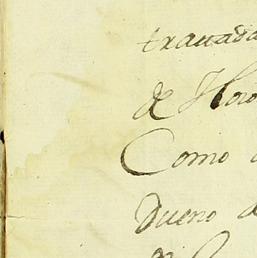 trauada
de Horo
Como d
Dueno d